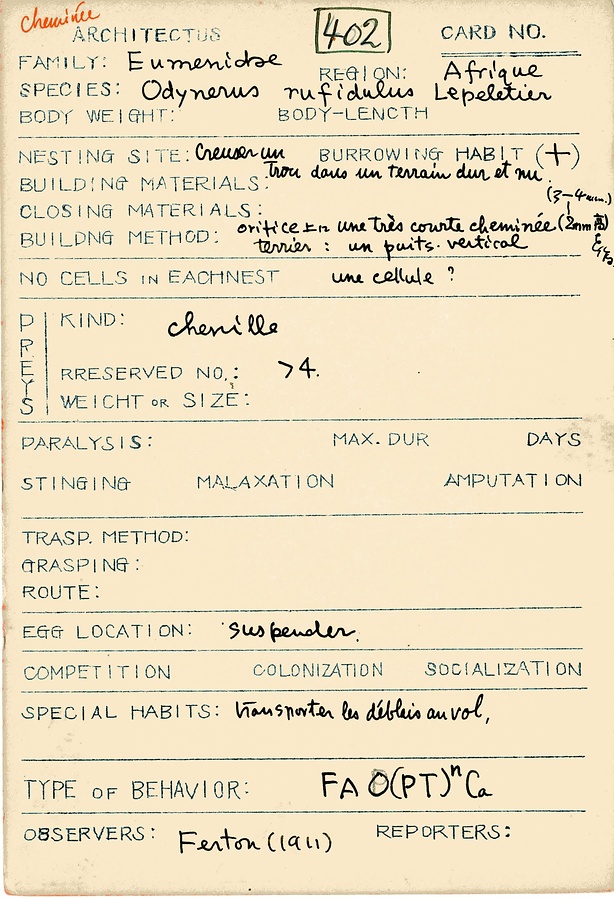 cheminée
ARCHITECTUS 402 CARD NO.
FAMILY: Eumenidae REGION: Afrique
SPECIES: Odynerus rufidulus Lepeletier
BODY WEIGHT: BODY-LENGTH
NESTING SITE: Creuser un BURROWING HABIT (+)
trou dans un terrain dur et nu.
BUILDING MATERIALS:
(3-4mm.)
CLOSING MATERIALS:
orifice une très courte cheminée (2mm高)
BUILDNG METHOD: terrier : un puits vertical
NO CELLS IN EACHNEST une cellule ?
PREYS
KIND: chenille
RRESERVED NO.: >4.
WEIGHT OR SIZE:
PARALYSIS: MAX. DUR DAYS
STINGING MALAXATION AMPUTATION
TRASP. METHOD:
GRASPING:
ROUTE:
EGG LOCATION: suspender.
COMPETITION COLONIZATION SOCIALIZATION
SPECIAL HABITS: transporter les déblais au vol,
TYPE OF BEHAVIOR: FA O(PT)ⁿCa
OBSERVERS: Ferton (1911) REPORTERS: